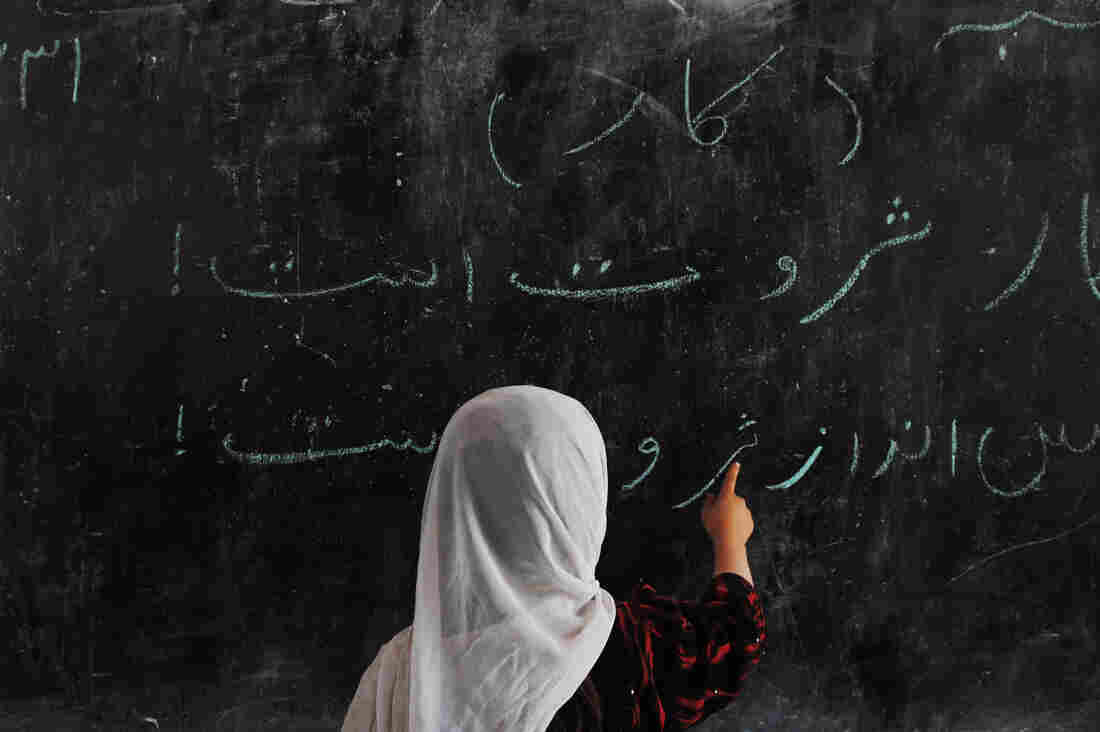 ۳۱
( کار )
کار ثروت است !
پس انداز ثروت است !